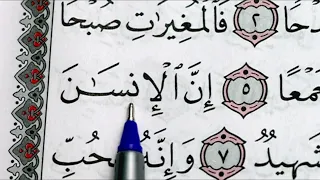 دْحًا ٢ فَٱلْمُغِيرَٰتِ صُبْحًا
جَمْعًا ٥ إِنَّ ٱلْإِنسَٰنَ
شَهِيدٌ ٧ وَإِنَّهُۥ لِحُبِّ